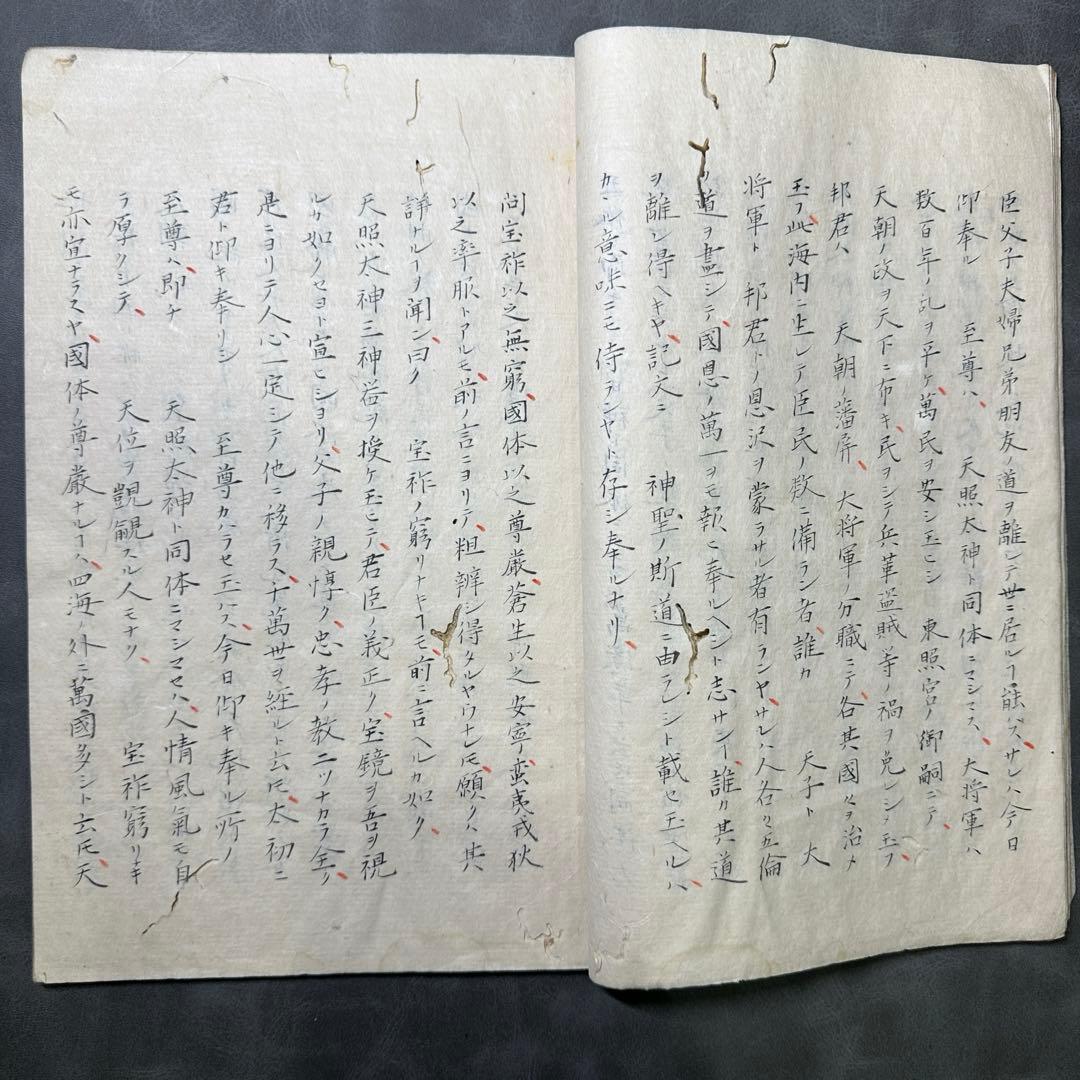 臣父子夫婦兄弟朋友ノ道ヲ離レテ世ニ居ルヿ能ハズ、サレハ今日
仰奉ル　至尊ハ、天照太神ト同体ニマシマス、大将軍ハ
数百年ノ乱ヲ平ケ、萬民ヲ安シ玉ヒシ　東照宮ノ御嗣ニテ、
天朝ノ政ヲ天下ニ布キ、民ヲシテ兵革盗賊等ノ禍ヲ免レシメ玉フ、
邦君ハ　天朝ノ藩屏、大将軍ノ分職ニテ、各其國々ヲ治メ
玉フ、此海内ニ生レテ臣民ノ数ニ備ラン者、誰カ　天子ト　大
将軍ト　邦君トノ恩沢ヲ蒙ラサル者有ランヤ、サレハ人各々五倫
ノ道ヲ盡シテ、國恩ノ萬一ヲモ報ヒ奉ルヘシト志サンニ、誰カ其道
ヲ離レ得ヘキヤ、記文ニ　神聖ノ斯道ニ由ラレシト載セ玉ヘルハ、
カヽル意味ニモ侍ランヤト存シ奉ルナリ、
問宝祚以之無窮、國体以之尊厳、蒼生以之安寧、蛮夷戎狄
以之率服トアルモ、前ノ言ニヨリテ、粗辨シ得タルヤウナレ𪜈、願クハ其
詳ナルヿヲ聞ン、曰ク　宝祚ノ窮リナキヿモ、前ニ言ヘルカ如ク、
天照太神三神器ヲ授ケ玉ヒテ、君臣ノ義正ク、宝鏡ヲ吾ヲ視
ルカ如クセヨト宣ヒシヨリ、父子ノ親惇ク、忠孝ノ教二ツナカラ全ク、
是ニヨリテ人心一定シテ他ニ移ラス、千萬世ヲ経ルト云𪜈、太初ニ
君ト仰キ奉リシ　至尊カハラセ玉ハス、今日仰キ奉ル所ノ
至尊ハ、即チ　天照太神ト同体ニマシマセハ、人情風氣モ自
ラ厚クシテ、　天位ヲ覬覦スル人モナク、　宝祚窮リキ
モ亦宜ナラスヤ、國体ノ尊厳ナルヿハ、四海ノ外ニ萬國多シト云𪜈、天